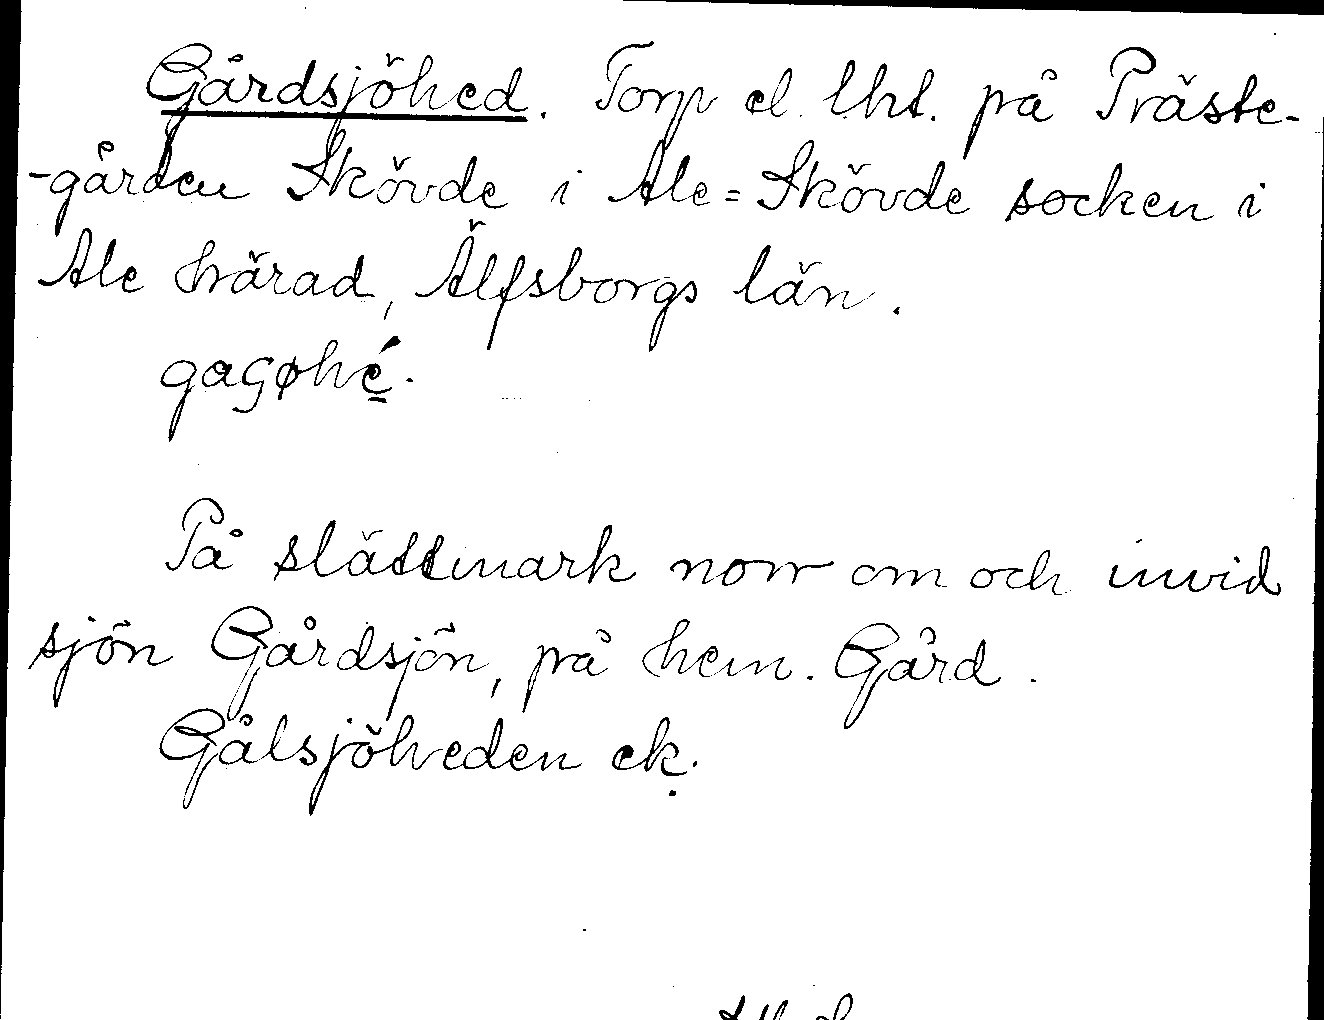 Gårdsjöhed. Torp el. lht. på Präste-
-gården Skövde i Ale=Skövde socken i
Ale härad, Älfsborgs län.
På slättmark norr om och invid
sjön Gårdsjön, på hem. Gård.
Gålsjöheden ek.